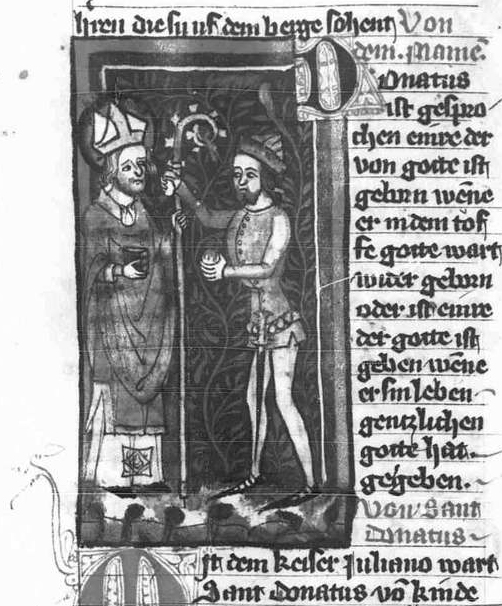 hren die su uf dem berge sohent Von
dem. Name.
Donatus
ist gespro
chen einre der
von gotte ist
geborn wēne
er in dem tof
fe gotte wart
wider geborn
oder ist einre
der gotte ist
geben wēne
er sin leben
gentzlichen
gotte hat.
gegeben.
von Sant
donatus
It dem keiser Juliano wart
Sant donatus vō kinde